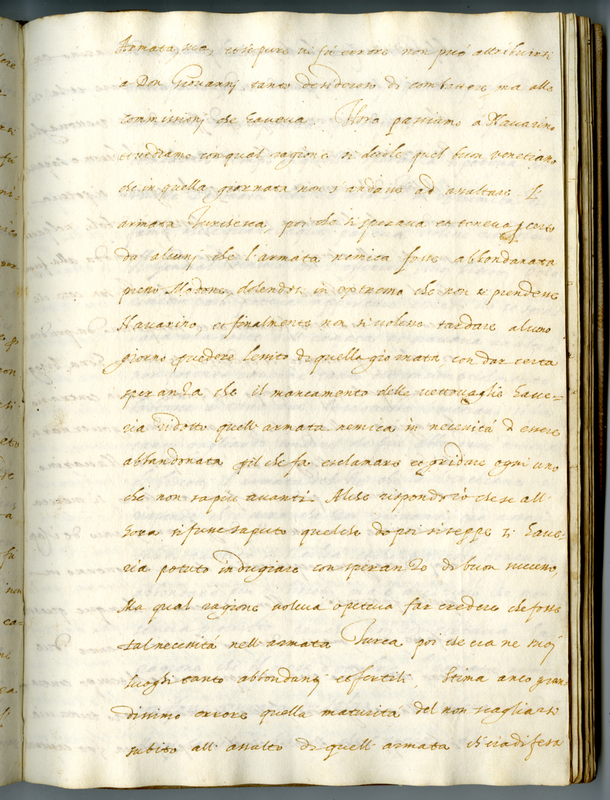 Armata sua, et se pure vi fu errore non può attribuirsi
a Don Giovannj tanto desideroso di combatere, ma alle
commissionj che haveva. Hora passiamo a Navarino
et vediamo con qual ragione si duole quel buon venetiano
che in quella giornata non s'andasse ad assaltare L'
armata Turchesca, poi che si sperava et teneva p certo
da alcunj che l'armata nemica fosse abbondanata
presso Modone, dolendosi in estremo che non si prendesse
Navarino, et finalmente non si volesse tardare alcuno
giorno p vedere l'esito di quella giornata con dar certa
speranza che il mancamento delle vettovaglie have-
ria ridotto quell'armata nemica in necessità d'essere
abbandonata, il che fa esclamare et gridare ogni uno
che non sa più avanti. Al che rispondo io che se all'
hora si fusse saputo quel che dopoi si seppe si have-
ria potuto indugiare con speranza di buon successo,
Ma qual ragione voleva o poteva far credere che fosse
tal necessità nell'armata Turca poi che era ne suoj
luoghi tanto abbondantj et fertili. Stima anco gran-
dissimo errore quella maturità del non scagliarsi
subito all'assalto di quell'armata difesa